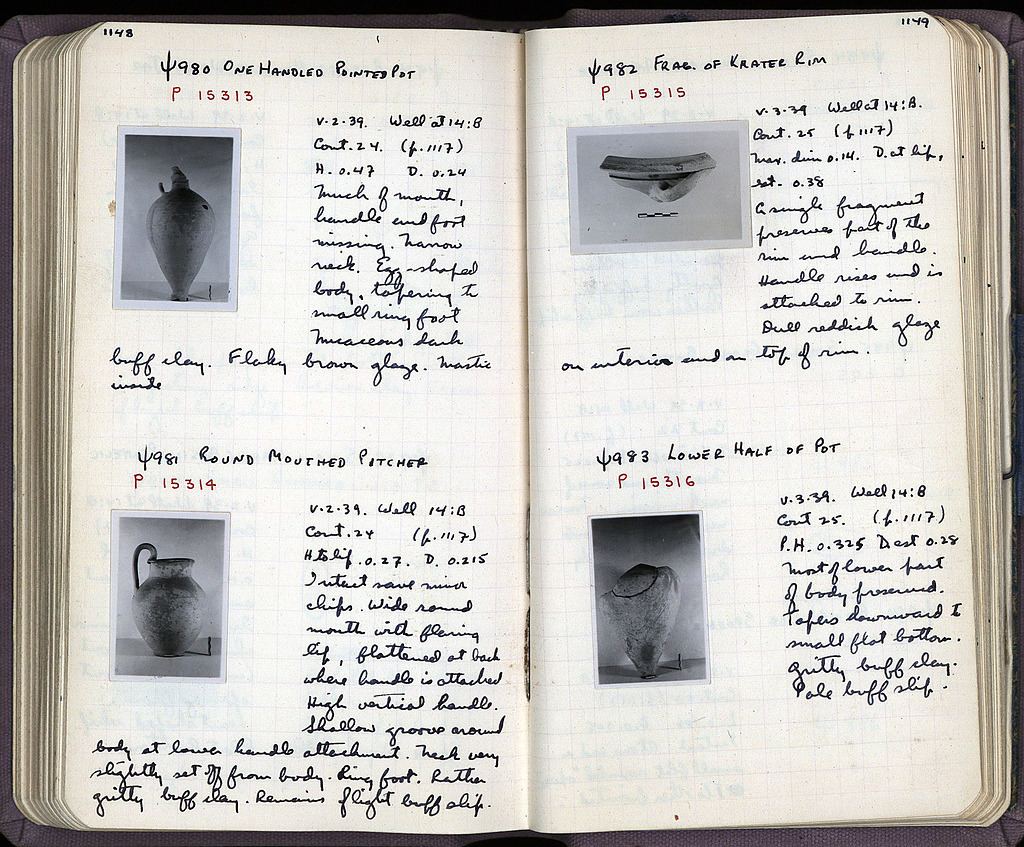 1148
Ψ980 ONE HANDLED POINTED POT
P 15313
V-2-39. Well at 14:B
Cont. 24. (p. 1117)
H. 0.47 D. 0.24
Much of mouth,
handle and foot
missing. Narrow
neck. Egg-shaped
body, tapering to
small ring foot
Micaceous dark
buff clay. Flaky brown glaze. Mastic
inside
Ψ981 ROUND MOUTHED PITCHER
P 15314
V-2-39. Well 14:B
Cont. 24 (p. 1117)
H to lip. 0.27. D. 0.215
Intact save minor
chips. Wide round
mouth with flaring
lip, flattened at back
where handle is attached
High vertical handle.
Shallow groove around
body at lower handle attachment. Neck very
slightly set off from body. Ring foot. Rather
gritty buff clay. Remains of light buff slip.
1149
Ψ982 FRAG. OF KRATER RIM
P 15315
V-3-39 Well at 14:B.
Cont. 25 (p. 1117)
Max. dim 0.14. D. at lip,
est. 0.38
A single fragment
preserves part of the
rim and handle.
Handle rises and is
attached to rim.
Dull reddish glaze
on interior and on top of rim.
Ψ983 LOWER HALF OF POT
P 15316
V-3-39. Well 14:B
Cont 25. (p. 1117)
P.H. 0.325 D est 0.28
Most of lower part
of body preserved.
Tapers downward to
small flat bottom.
Gritty buff clay.
Pale buff slip.